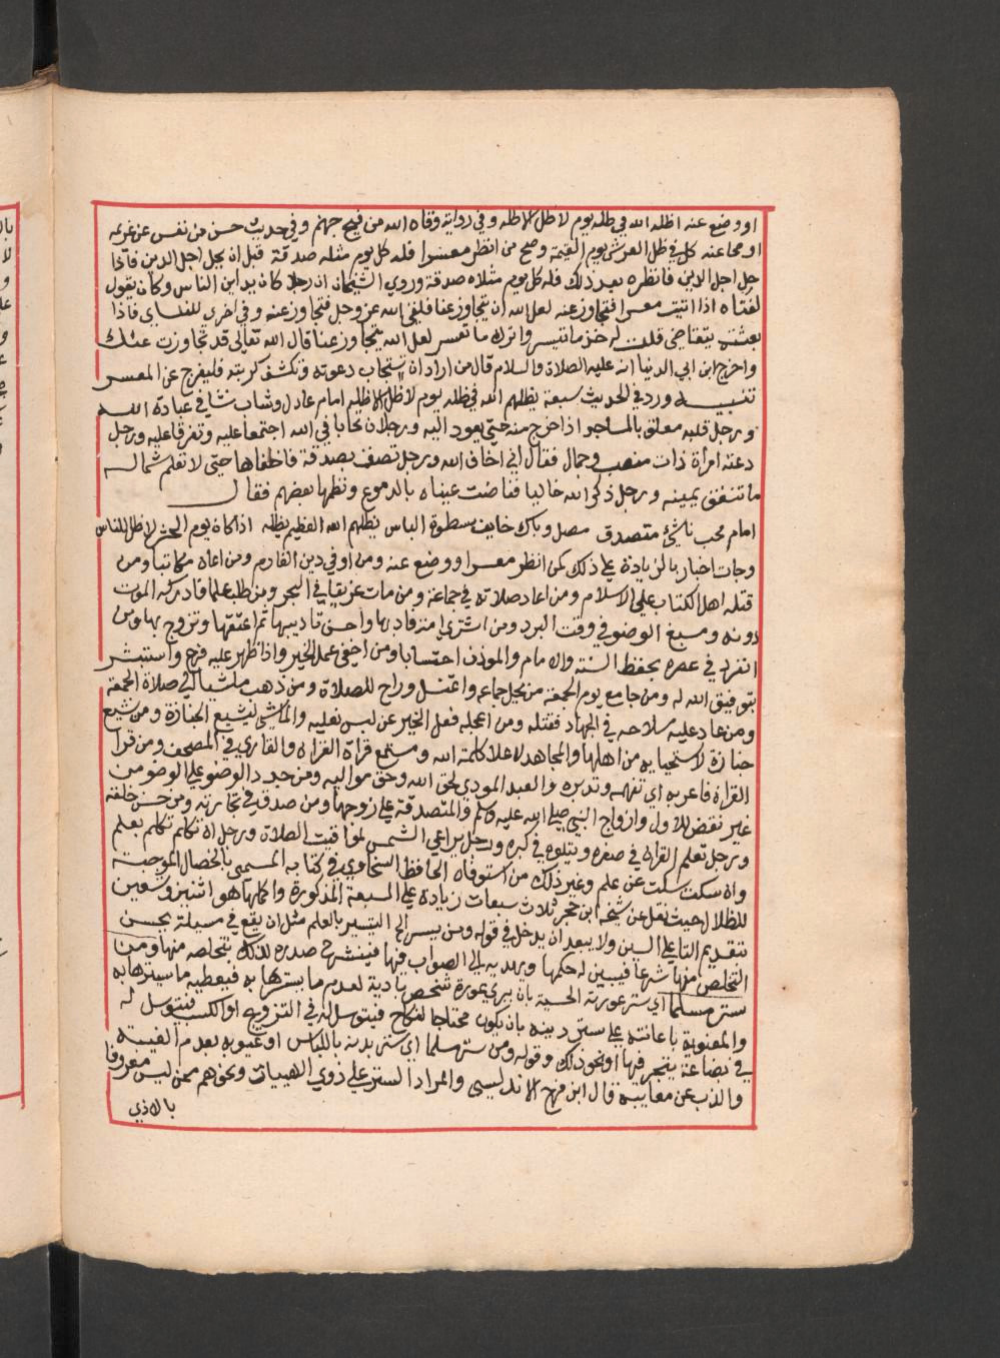 او وضع عنه اظله الله في ظله يوم لا ظل الا ظله وفي رواية وقاه الله من فيح جهنم وفي حديث حسن من نفس عن غريمه
او محا عنه كان في ظل العرش يوم القيمة وصح من انظر معسرا فله كل يوم مثله صدقة قبل ان يحل اجل الدين فاذا
حل اجل الدين فانظره بعد ذلك فله كل يوم مثلاه صدقة وروي الشيخان ان رجلا كان يداين الناس وكان يقول
لفتاه اذا اتيت معسرا فتجاوز عنه لعل الله ان يتجاوز عنا فلقي الله عز وجل فتجاوز عنه وفي اخري للنساي فاذا
بعثته يتقاضي قلت له خذ ما تيسر واترك ما تعسر لعل الله يتجاوز عنا قال الله تعالي قد تجاوزت عنك
واخرج ابن ابي الدنيا انه عليه الصلاة والسلام قال من اراد ان تستجاب دعوته وتكشف كربته فليفرج عن المعسر
تنبيه ورد في الحديث سبعة يظلهم الله في ظله يوم لا ظل الا ظله امام عادل وشاب نشا في عبادة الله
ورجل قلبه معلق بالمساجد اذا خرج منه حتي يعود اليه ورجلان تحابا في الله اجتمعا عليه وتفرقا عليه ورجل
دعته امراة ذات منصب وجمال فقال اني اخاف الله ورجل تصدق بصدقة فاخفاها حتي لا تعلم شماله
ما تنفق يمينه ورجل ذكر الله خاليا ففاضت عيناه بالدموع ونظمها بعضهم فقال
امام محب ناشئ متصدق مصل وباك خايف سطوة الباس يظلهم الله العظيم بظله اذا كان يوم الحشر لا ظل للناس
وجات اخبار بالزيادة علي ذلك كمن انظر معسرا ووضع عنه ومن اوفي دين الغارم ومن اعان مكاتبا ومن
قتله اهل الكتاب علي الاسلام ومن اعاد صلاته في جماعة ومن مات غريقا في البحر ومن طلب علما فادركه الموت
دونه ومسبغ الوضو في وقت البرد ومن اشتري امة فادبها واحسن تاديبها ثم اعتقها وتزوج بها ومن
انفرد في عصره بحفظ السنة والامام والموذن احتسابا ومن اخفي عمل الخير واذا ظهر عليه فرح واستبشر
بتوفيق الله له ومن جامع يوم الجمعة من يحل جماعه واغتسل وراح للصلاة ومن ذهب ماشيا الي صلاة الجمعة
ومن عاد عليه سلاحه في الجهاد فقتله ومن اعجله فعل الخير عن لبس نعليه والماشي لتشيع الجنازة ومن شيع
جنازة لاستحيايه من اهلها والمجاهد لاعلا كلمة الله ومستمع قراة القران والقاري في المصحف ومن قرا
القران فاعربه اي تفهمه وتدبره والعبد المودي لحق الله وحق مواليه ومن جدد الوضو علي الوضو من
غير نقض للاول وازواج النبي صلي الله عليه وسلم والمتصدقة علي زوجها ومن صدق في تجارته ومن حسن خلقه
ورجل تعلم القران في صغره ويتلوه في كبره ورجل يراعي الشمس لمواقيت الصلاة ورجل ان تكلم تكلم بعلم
وان سكت سكت عن علم وغير ذلك من استوفاه الحافظ السخاوي في كتابه المسمي بالخصال الموجبة
للظلال حيث نقل عن شيخه ابن حجر ثلاث سبعات زيادة علي السبعة المذكورة واكملها هو اثنين وسبعين
بتقديم التا علي السين ولا يبعد ان يدخل في قوله ومن يسر الخ التيسير بالعلم مثل ان يقع في مسيلة يحسن
التخلص منها شرعا فيبين له حكمها ويهديه الي الصواب فيها فينشرح صدره لذلك بتخلصه منها ومن
ستر مسلما اي ستر عورته الحسية بان يري عورة شخص بادية لعدم ما يسترها به فيعطيه ما يسترها به
والمعنوية باعانته علي ستر دينه بان يكون محتاجا لنكاح فيتوسل له في التزويج او الكسب فيتوسل له
في بضاعة يتجر فيها او نحو ذلك وقوله ومن ستر مسلما اي ستر بدنه باللباس او عيوبه بعدم الغيبة
والذب عن معايبه قال ابن فرح الاندلسي والمراد الستر علي ذوي الهييات ونحوهم ممن ليس معروفا
بالاذي